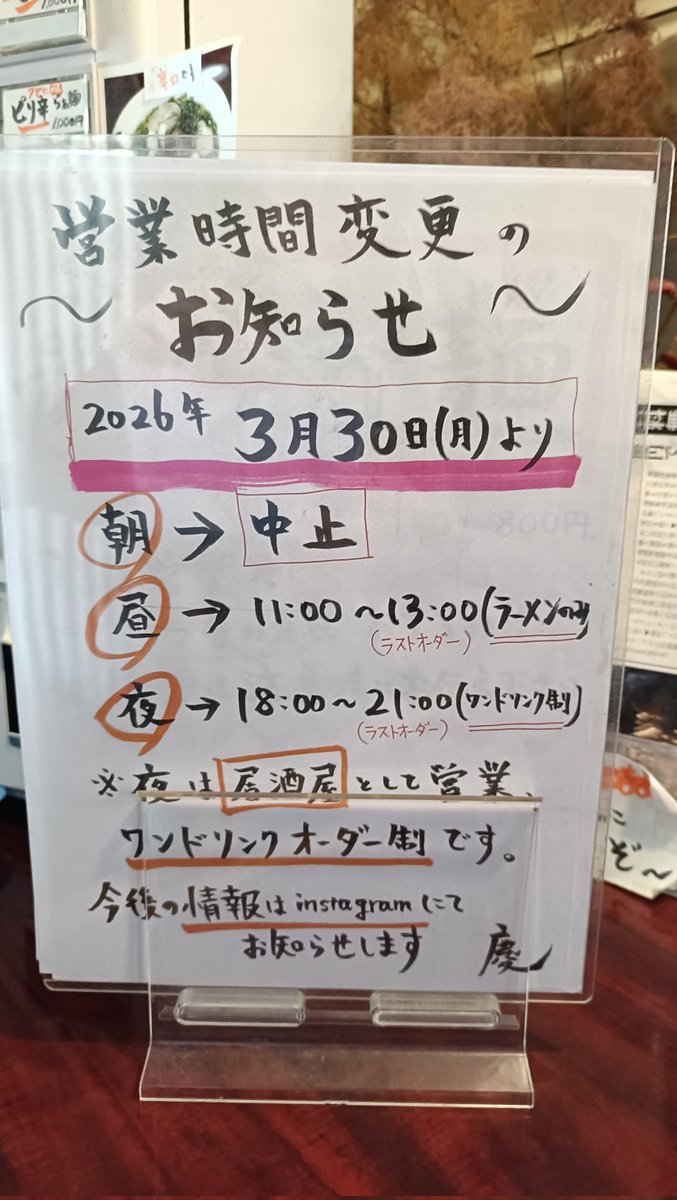 クセになる
ピリ辛らぁ麺
1,000円
辛口です
営業時間変更の
〜お知らせ〜
2026年 3月30日(月)より
朝→中止
昼→11:00〜13:00(ラーメンのみ)
(ラストオーダー)
夜→18:00〜21:00(ワンドリンク制)
(ラストオーダー)
※夜は居酒屋として営業、
ワンドリンクオーダー制です。
今後の情報はinstagramにて
お知らせします 慶
ぞ〜